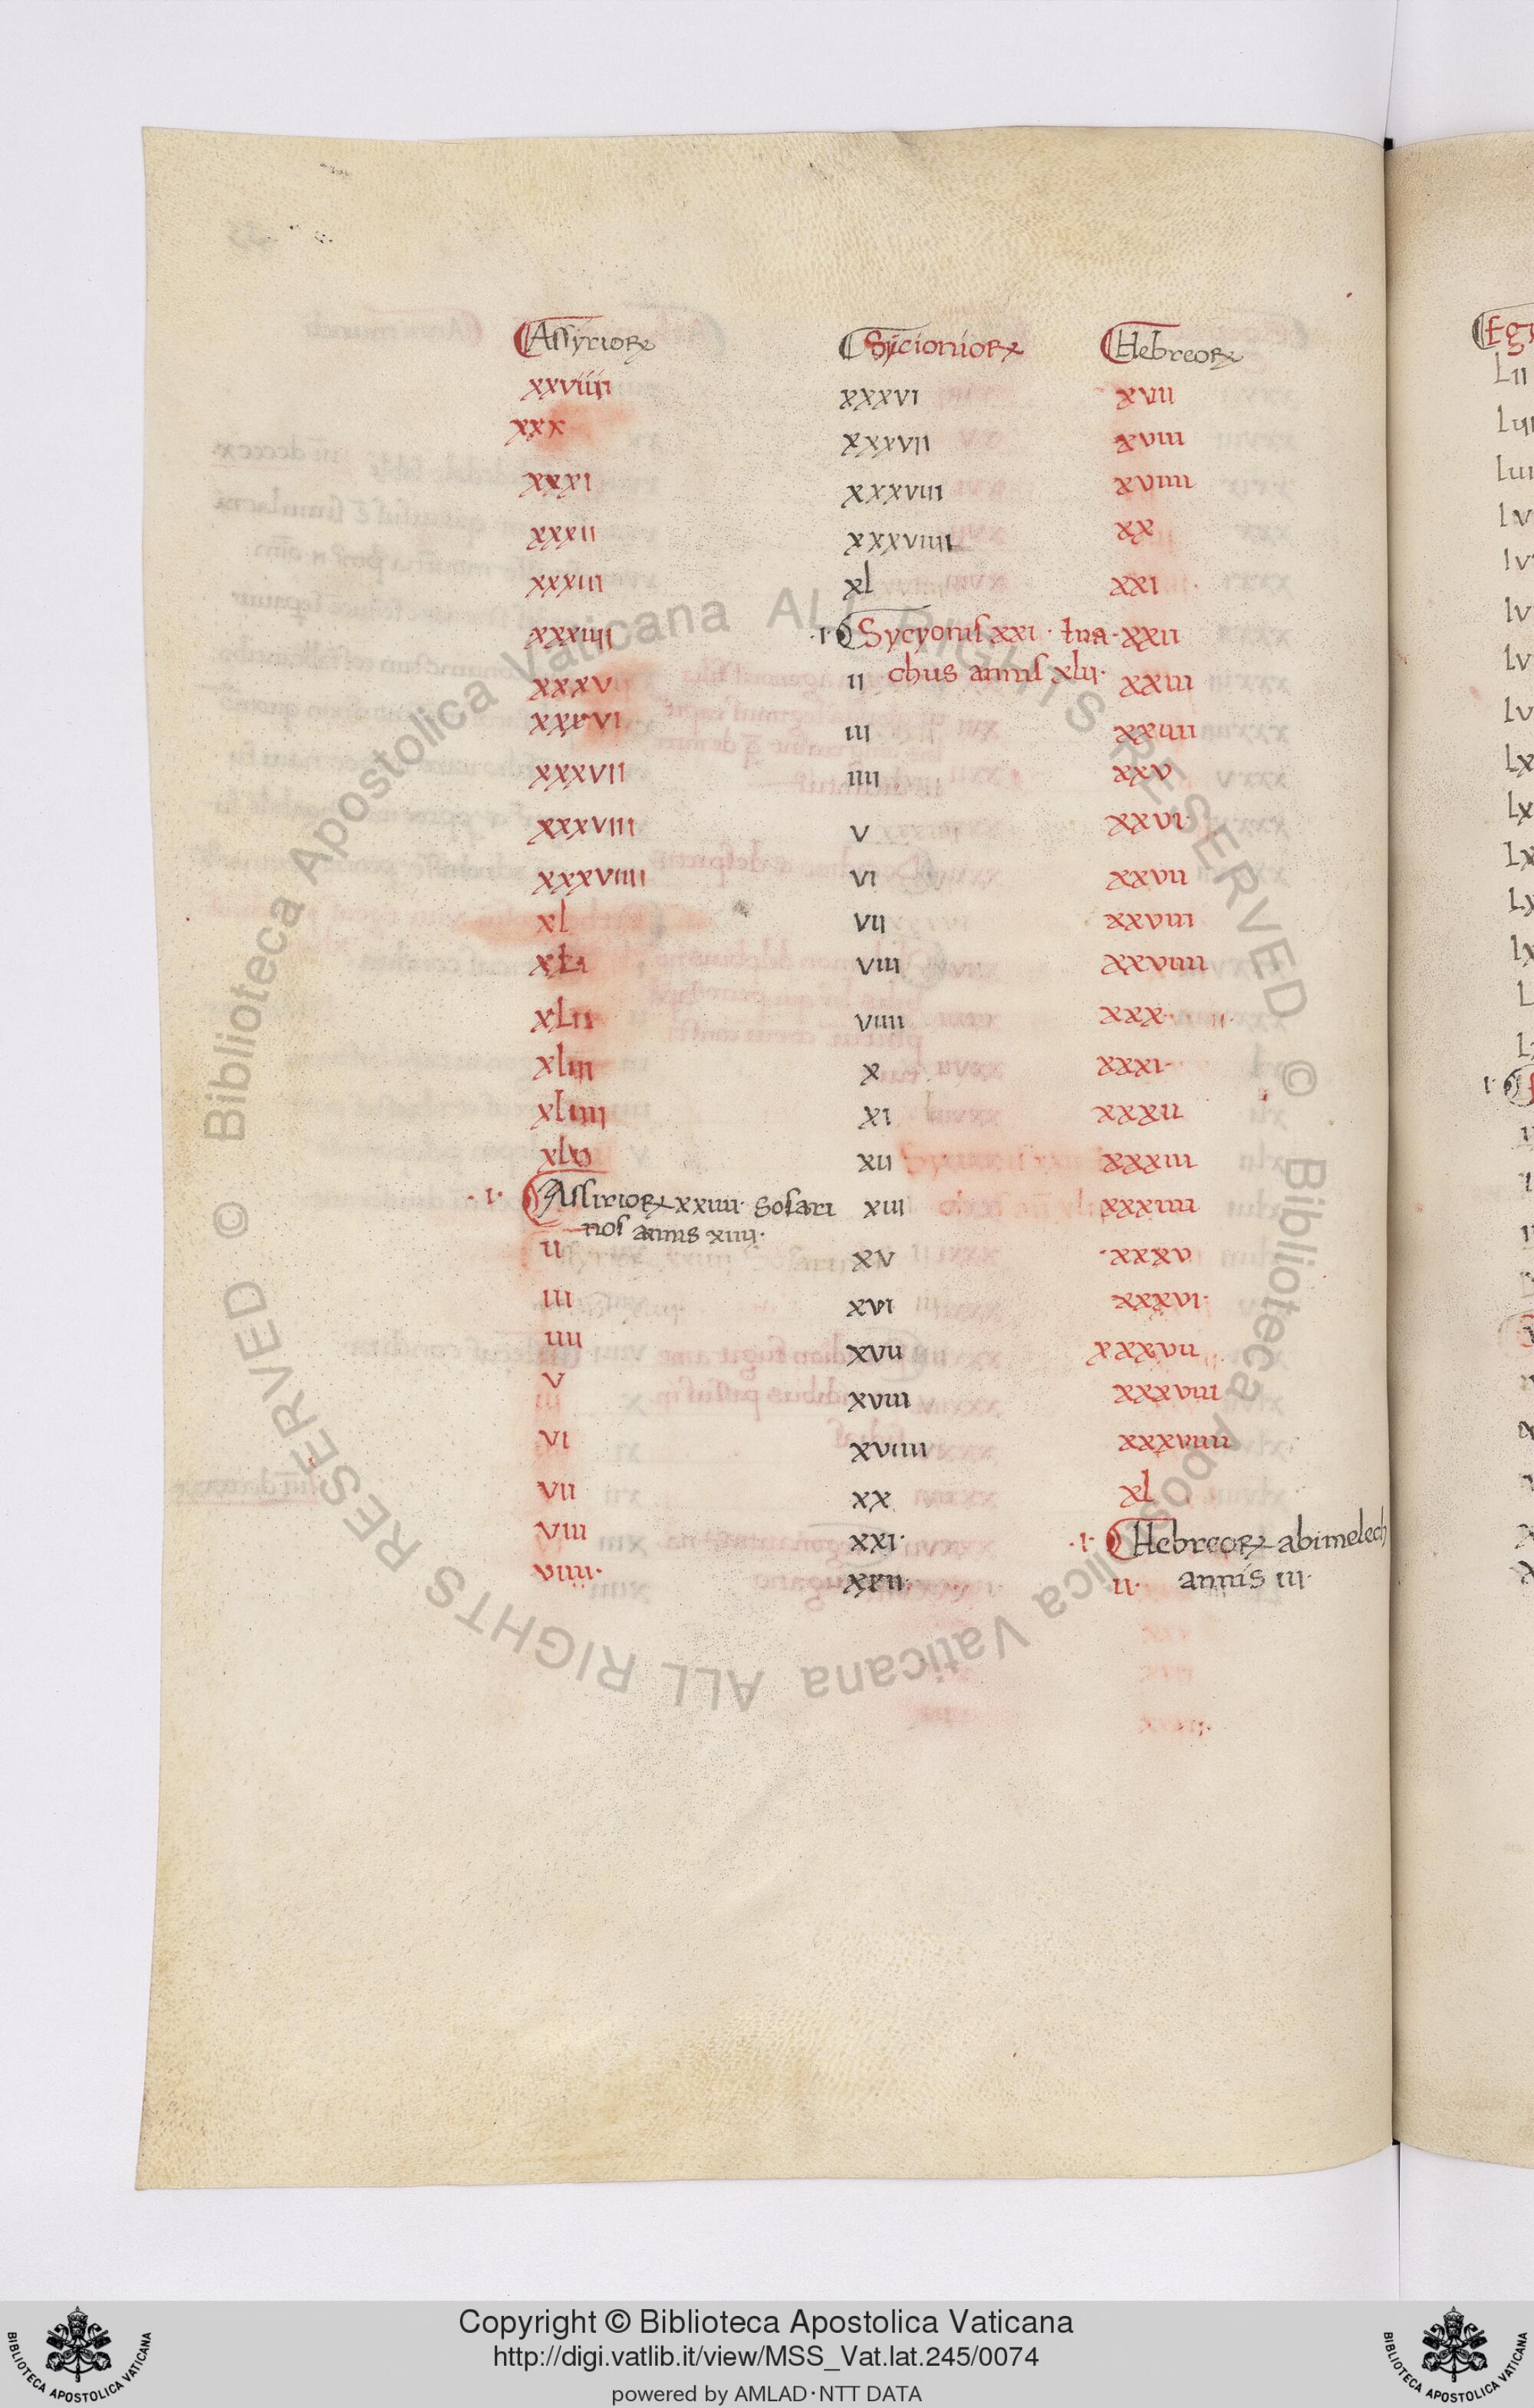 Assyrioꝝ Sycionioꝝ Hebreoꝝ
xxviiii xxxvi xvii
xxx xxxvii xviii
xxxi xxxviii xviiii
xxxii xxxviiii xx
xxxiii xl xxi
xxxiiii ·i· Sycyonis xxi · Ina- xxii
xxxv ii chus annis xlii· xxiii
xxxvi iii xxiiii
xxxvii iiii xxv
xxxviii v xxvi·
xxxviiii vi xxvii
xl vii xxviii
xli viii xxviiii
xlii viiii xxx·
xliii x xxxi·
xliiii xi xxxii
xlv xii xxxiii
·i· Assirioꝝ xxiiii· Sosari xiii xxxiiii
nos annis xiiii·
ii xv ·xxxv
iii xvi xxxvi·
iiii xvii xxxvii
v xviii xxxviii
vi xviiii xxxviiii
vii xx xl
viii xxi· ·i· Hebreoꝝ abimelech
viiii· xxii· ii· annis iii·
Egi
Lii
© Biblioteca Apostolica Vaticana ALL RIGHTS RESERVED © Biblioteca Apostolica Vaticana ALL RIGHTS RESERVED
Copyright © Biblioteca Apostolica Vaticana
http://digi.vatlib.it/view/MSS_Vat.lat.245/0074
powered by AMLAD·NTT DATA
BIBLIOTECA APOSTOLICA VATICANA
BIBLIOTECA APOSTOLICA VATICANA